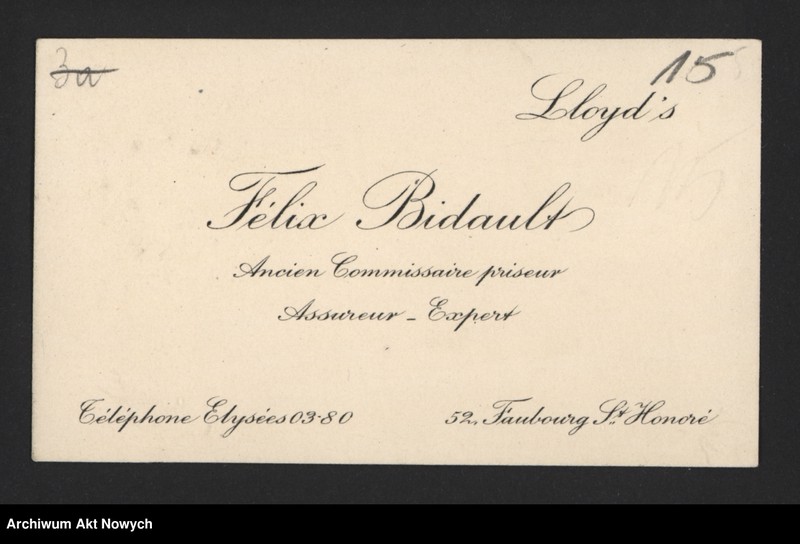 3a
15
Lloyd's
Félix Bidault
Ancien Commissaire priseur
Assureur - Expert
Téléphone Elysées 03-80
52, Faubourg St Honoré
Archiwum Akt Nowych